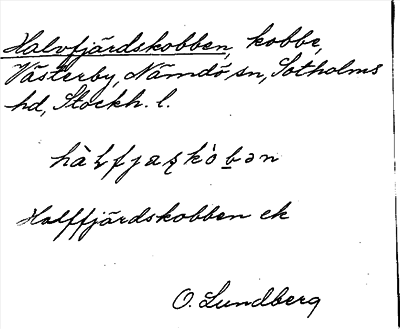 Halvfjärdskobben, kobbe,
Västerby, Nämdö sn, Sotholms
hd, Stockh. l.
Halffjärdskobben ek
O. Lundberg